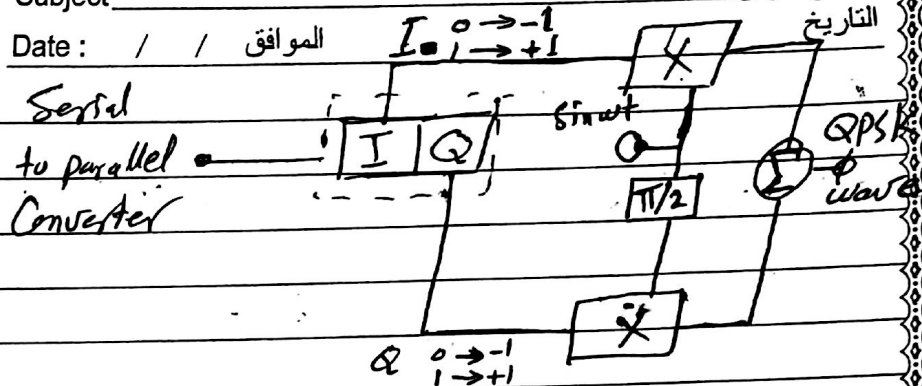 Subject
التاريخ
Date : / / الموافق
I 0 → -1
1 → +1
X
Serial
to parallel
Converter
I Q
sin wt
π/2
Σ
QPSK
wave
X
Q 0 → -1
1 → +1